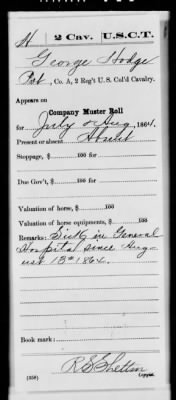 H 2 Cav. U.S.C.T.
George Hodge
Pvt, Co. A, 2 Reg't U. S. Col'd Cavalry.
Appears on
Company Muster Roll
for July & Aug, 1864.
Present or absent Absent
Stoppage, $ 100 for
Due Gov't, $ 100 for
Valuation of horse, $ 100
Valuation of horse equipments, $ 100
Remarks: Sick in General
Hospital since Aug-
ust 13th 1864.
Book mark:
(358)
Copyist.